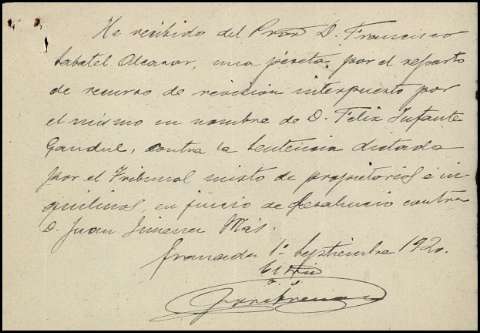 He recibido del Procr D. Francisco
Sabatel Alcazar, una peseta, por el reparto
de recurso de revisión interpuesto por
el mismo en nombre de D. Felix Infante
Gandul, contra la Sentencia dictada
por el Tribunal mixto de propietarios é in
quilinos, en juicio de desahucio contra
D. Juan Jimenez Más.
Granada 1º Septiembre 1920.
El